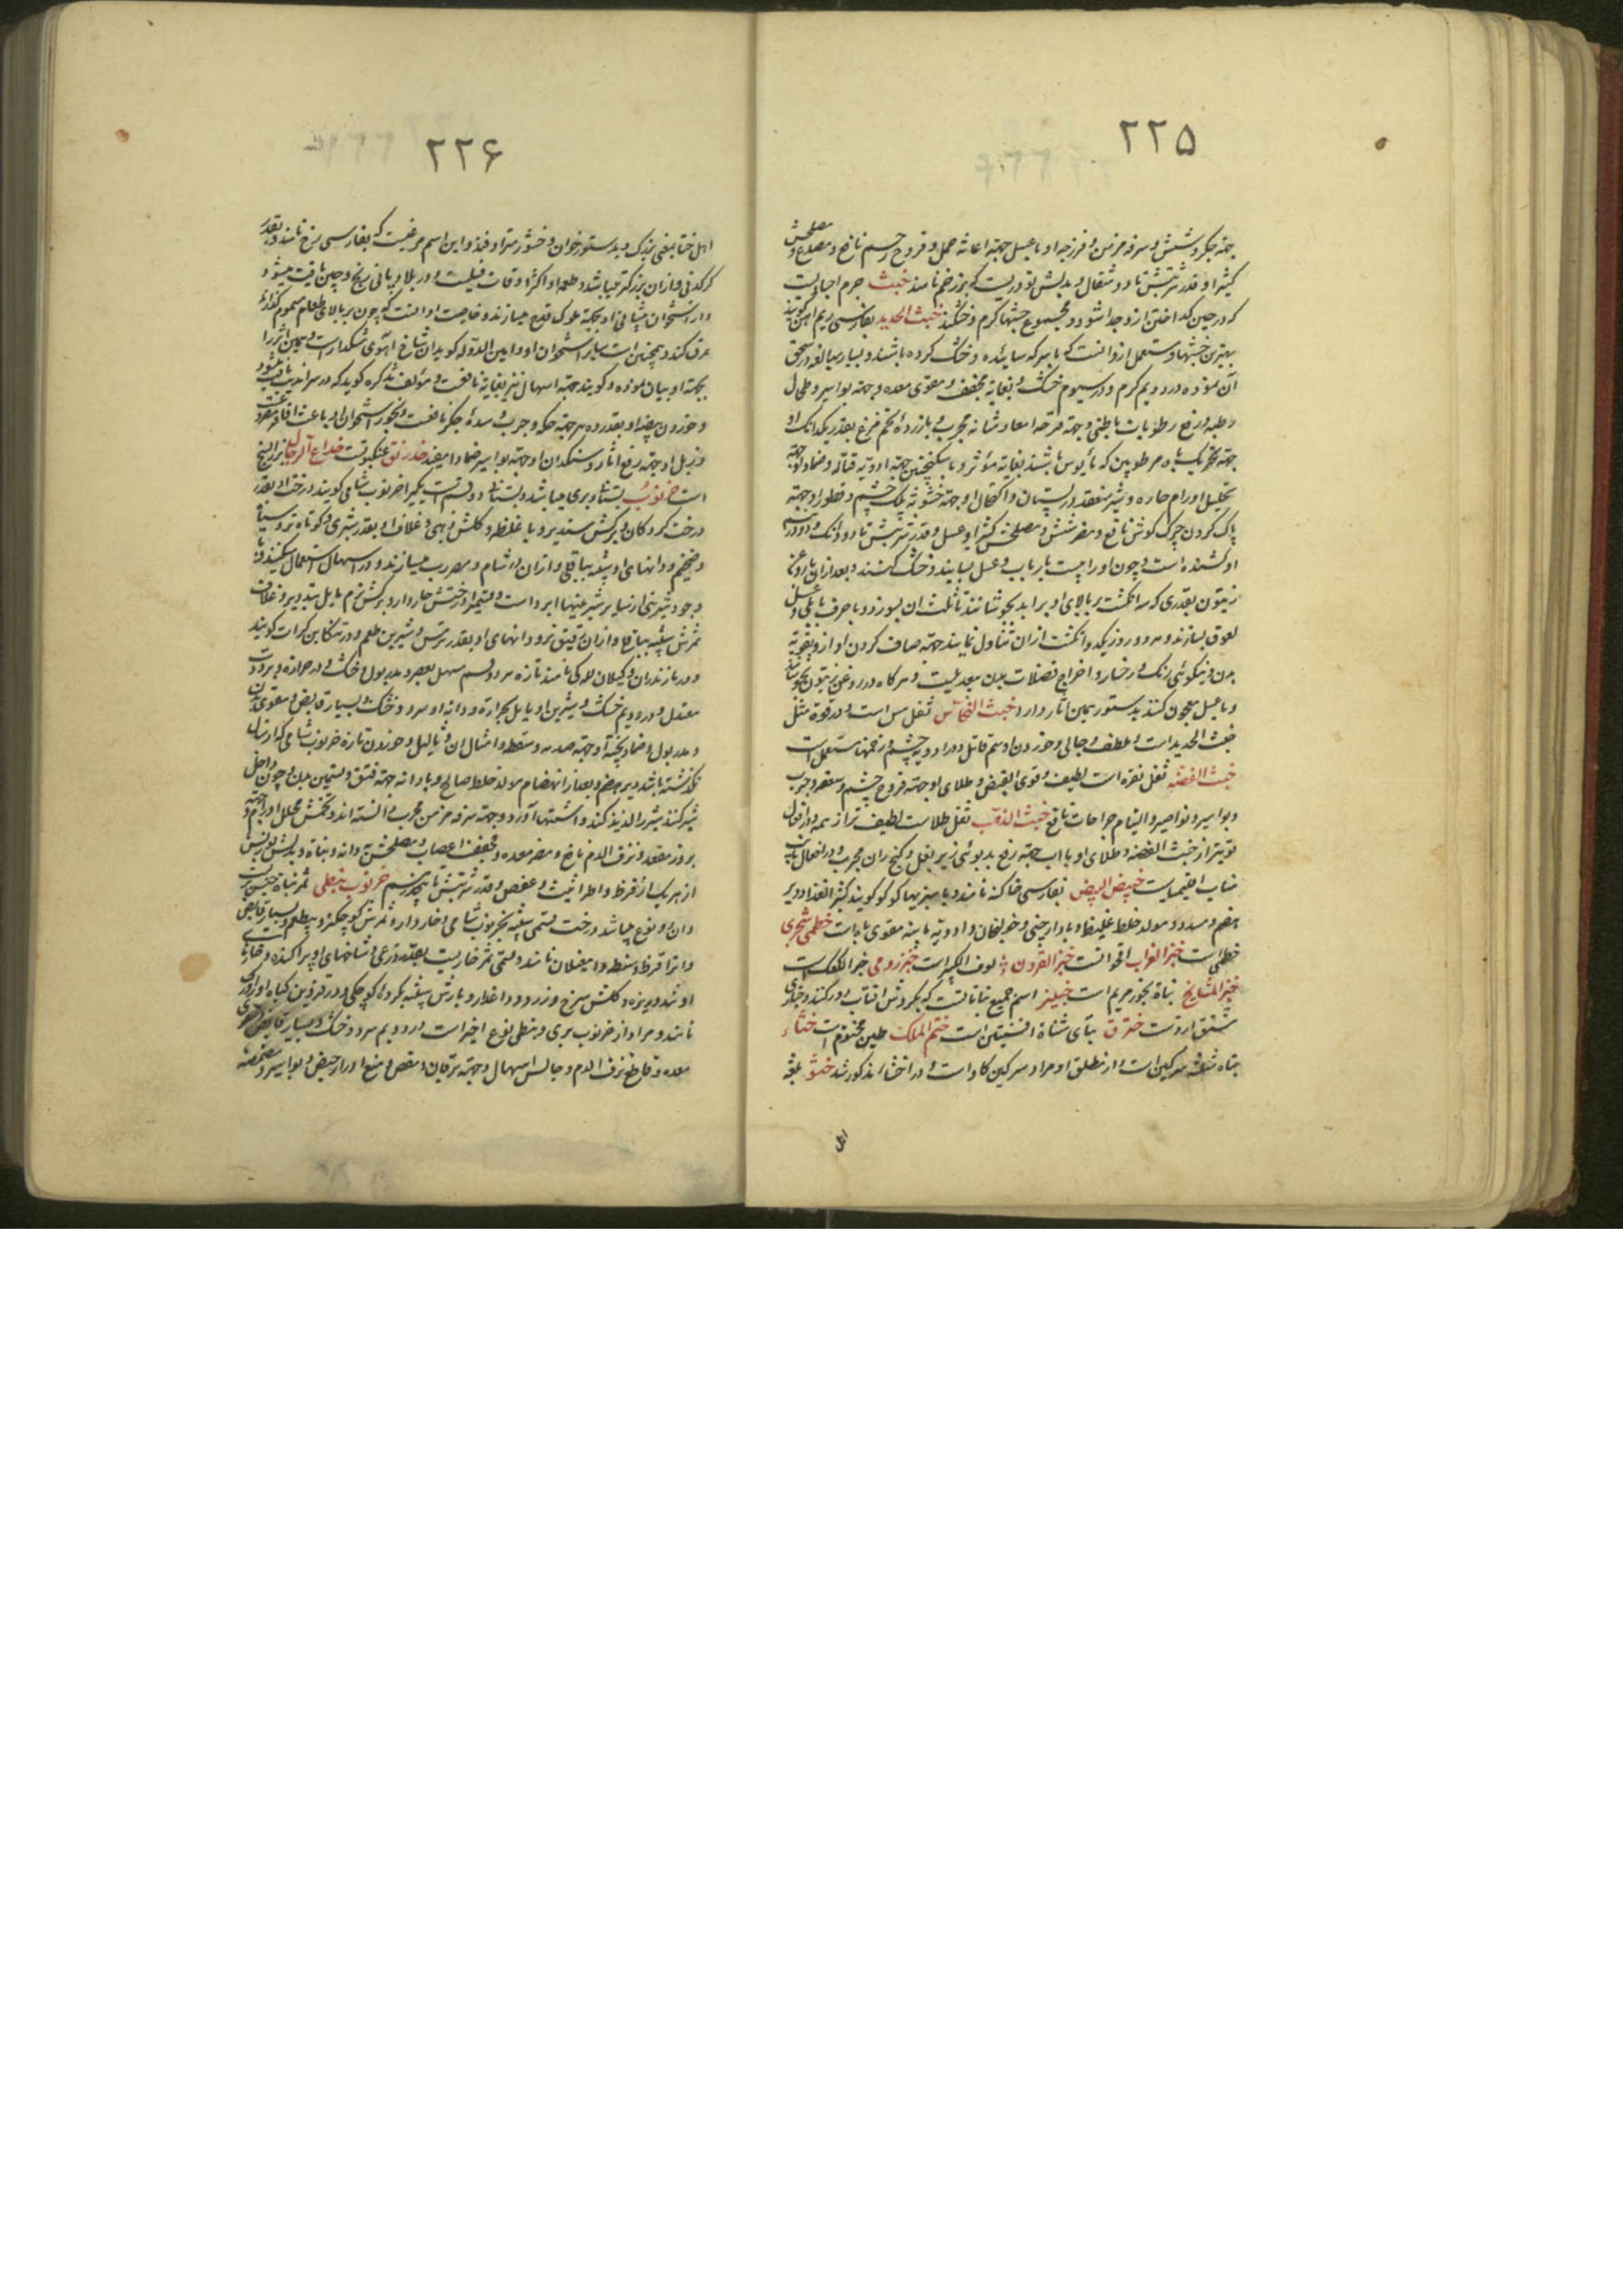 ۲۲۵
جهة جگر و شش و سرفه مزمن و فرزجه او با عسل جهة اعانه حمل و قروح رحم نافع و مصدع و مصلحش
کثیرا و قدر شربتش تا دو مثقال و بدلش تودریست که بزر خم نامند خبث جرم اجسادیست
که در حین گداختن از او جدا شود و مجموع خبثها گرم و خشکند خبث الحدید بفارسی ریم آهن گویند
بهترین خبثها و مستعمل ازو آنست که با سرکه سائیده و خشک کرده باشند و بسیار مبالغه در سحق
آن نموده در دویم گرم و در سیوم خشک و بغایة مجفف و مقوی معده و جهة بواسیر و طحال
و رفع رطوبات باطنی و جهة قرحه امعا و مثانه مجرب و با زرده تخم مرغ بقدر یکدانک او
جهة تحریک باه مرطوبین که مأیوس باشند بغایة مؤثر و با سکنجبین جهة ادویه قتاله و ضماد او جهة
تحلیل اورام حاره و شیر منعقد در پستان و اکتحال او جهة خشونة پلک چشم و قطور او جهة
پاک کردن چرک گوش نافع و مضر شش و مصلحش کثیرا و عسل و قدر شربتش تا دو دانک و دو درم
او کشنده است و چون او را بیست بار با آب و عسل بسایند و خشک کنند و بعد از آن با روغن
زیتون بقدری که سه انگشت بر بالای او برآید بجوشانند تا ثلث آن بسوزد و با حرف بابلی و عسل
لعوق بسازند و هر روز یکدو انگشت از آن تناول نمایند جهة صاف کردن آواز و تقویة
بدن و نیکوئی رنگ رخسار و اخراج فضلات بدن بیعدیلست و هرگاه در روغن زیتون بجوشانند
و با عسل معجون کنند بدستور همین آثار دارد خبث النحاس ثفل مس است و در قوة مثل
خبث الحدید است و ملطف و جالی و خوردن او سم قاتل و در ادویه چشم و زخمها مستعمل است
خبث الفضه ثفل نقره است لطیف و قوی القبض و طلای او جهة قروح چشم و سعفه و جرب
و بواسیر و نواصیر و التیام جراحات نافع خبث الذهب ثفل طلاست لطیف‌تر از همه و در افعال
قویتر از خبث الفضه و طلای او با آب جهة رفع بدبوئی زیر بغل و کنج ران مجرب و در افعال
مناب اقلیمیاست خبیص البیض بفارسی خاگینه نامند و با سبزیها کوکو گویند کثیر الغذا و دیر
هضم و مسدد و مولد خلط غلیظ و با دارچینی و خولنجان و ادویه باهیه مقوی باه است خطمی شجری
خطمی است خبز الغراب اقحوانست خبز القرون لوف الکبیر است خبز رومی خبز الکعک است
خبز المشایخ نباة بخور مریم است خبلیز اسم جمیع نباتاتست که بگردش آفتاب دور کنند و خبازی
ستق از اوست خترق بتای مثناة افسنتین است ختم الملک طین مختوم است خثاء
بثاء مثلثه سرگین است و از مطلق او مراد سرگین گاو است و در اخثاء مذکور شد ختو بلغه
اهل
۲۲۶
اهل ختا بمعنی بزرک و بدستور خوان و ختو مترادفند و این اسم مرغیست که بفارسی رخ نامند و بقدر
کرکدنی و از آن بزرگتر میباشد و طعمه او اکثر اوقات فیلست و در بلاد بیابانی زنج و چین یافت میشود
و از استخوان پیشانی او بجهة ملوک قدح میسازند و خاصیت او آنست که چون بر بالای طعام مسموم گذارند
عرق کند و همچنین است سایر استخوان او و امین الدوله گوید آن شاخ آهوی مشکدار است و همین اثر را
بجهة او بیان نموده و گویند جهة اسهال نیز بغایة نافعست و مؤلف تذکره گوید که در سراندیب یافت میشود
و خوردن بیضه او بقدر ده درهم جهة حکه و جرب و سده جگر نافعست و بخور استخوان او باعث افاقه مصروع
و زبل او جهة رفع آثار و سنگدان او جهة بواسیر ضمادا مفید خدرنق عنکبوتست خداع الرجال بزر البنج
است خرنوب بستانی و بری میباشد و بستانی دو قسم است یکی را خرنوب شامی گویند درخت او بقدر
درخت گردکان و برگش مستدیر و با غلظ و گلش ذهبی و غلاف او بقدر شبری و کوتاه‌تر و سیاه
و ضخیم و دانهای او شبیه بباقلی و از آن در شام و مصر رب میسازند و در اسهال استعمال میکنند و با
وجود شیرینی از سایر شیرینیها ابرد است و قسم دیگر درختش خاردار و برگش نرم مایل بتدویر و غلاف
ثمرش شبیه بباقلا و از آن رقیق‌تر و دانهای او بقدر ترمس و شیرین طعم و در تنکابن کرات گویند
و در مازندران و گیلان للکی نامند تازه هر دو قسم مسهل بعصر و مدر بول و خشک او در حرارة و برودت
معتدل و در دویم خشک و شیرین او مایل بحرارة و دانه او سرد و خشک و بسیار قابض و مقوی بدن
و مدر بول و ضماد پخته او جهة صدمه و سقطه و امثال آن و ثآلیل و خوردن تازه خرنوب شامی که از سال
نگذشته باشد دیر هضم و بعد از انهضام مولد خلط صالح و با دانه جهة فتق و تسمین بدن و چون داخل
شیر کنند شیر را لذیذ کند و اشتها آورد و جهة سرفه مزمن مجرب دانسته‌اند و تخمش محلل اورام و جهة
بروز مقعد و نزف الدم نافع و مضر معده و مجفف اعصاب و مصلحش به دانه و نباة و بدلش بوزنش
از هر یک از قرظ و اطراثیث و عفص و قدر شربتش تا پنجدرهم خرنوب نبطی ثمر نباة جنبیست
و آن دو نوع میباشد درخت قسمی شبیه بخرنوب شامی و خاردار و ثمرش کوچکتر و بیطعم و بسیار قابض
و آنرا قرظ و سنط و ام غیلان نامند و قسمی ثمر خاریست بقدر ذرعی و شاخهای او پراکنده و خارهای
او تند و ریزه و گلش سرخ و زرد و داغدار و بارش شبیه بگرده کوچکی و در قزوین گیاه او را
نامند و مراد از خرنوب بری و نبطی نوع اخیر است در دویم سرد و خشک و بسیار قابض و مقوی
معده و قاطع نزف الدم و حابس اسهال و جهة یرقان و مغص و منع ادرار حیض و بواسیر و مضمضه